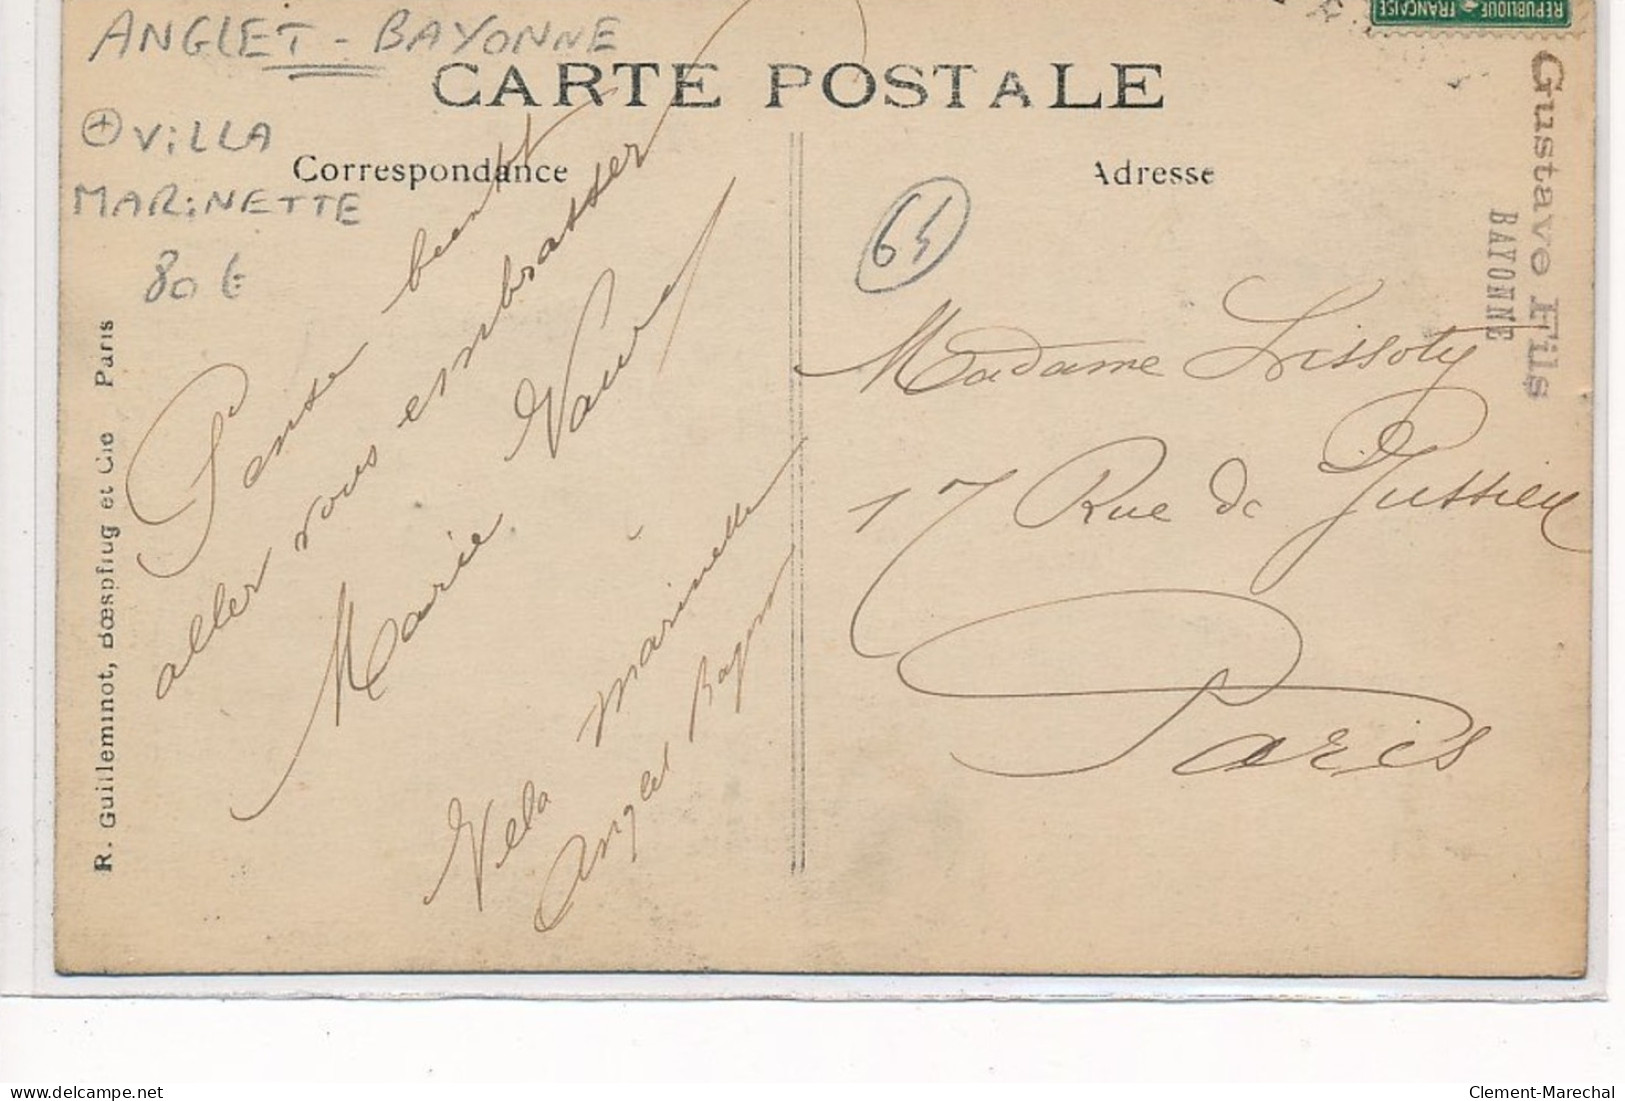 ANGLET - BAYONNE
⊕ ViLLA
MARiNETTE
80 €
CARTE POSTALE
Correspondance
Adresse
REPUBLIQUE FRANÇAISE
Gustave Fils
BAYONNE
64
Pense bientot
aller vous embrasser
Marie
Vela marinette
Anglet Bayonne
Madame Lissoty
17 Rue de Jussieu
Paris
R. Guilleminot, Bœspflug et Cie Paris
delcampe.net
Clement-Marechal